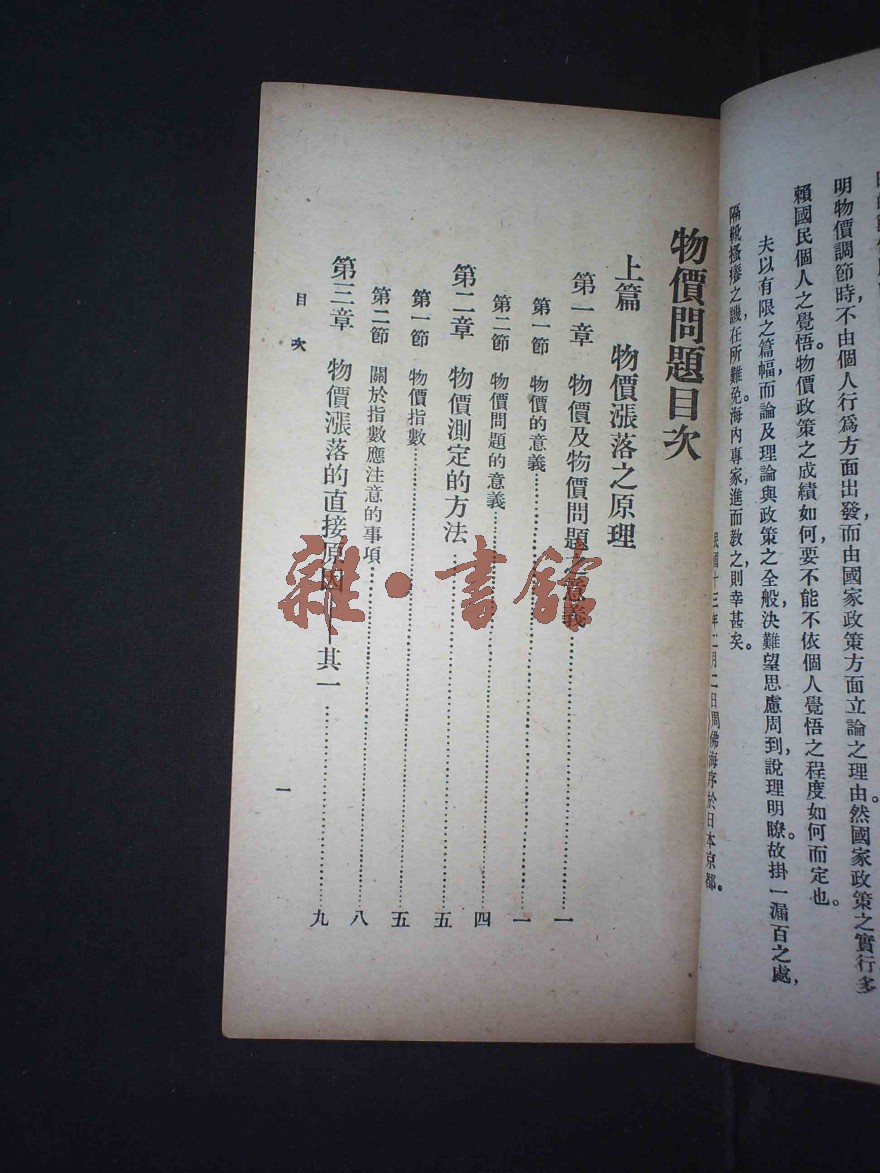 明物價調節時，不由個人行爲方面出發，而由國家政策方面立論之理由。然國家政策之實行多
賴國民個人之覺悟。物價政策之成績如何，要不能不依個人覺悟之程度如何而定也。
夫以有限之篇幅，而論及理論與政策之全般，決難望思慮周到，說理明瞭。故掛一漏百之處，
隔靴搔癢之譏，在所難免。海內專家，進而敎之，則幸甚矣。
民國十三年二月二日周佛海序於日本京都。
物價問題目次
上篇 物價漲落之原理
第一章 物價及物價問題之意義……一
第一節 物價的意義……一
第二節 物價問題的意義……四
第二章 物價測定的方法……五
第一節 物價指數……五
第二節 關於指數應注意的事項……八
第三章 物價漲落的直接原因——其一……九
目次
一
雜·書館